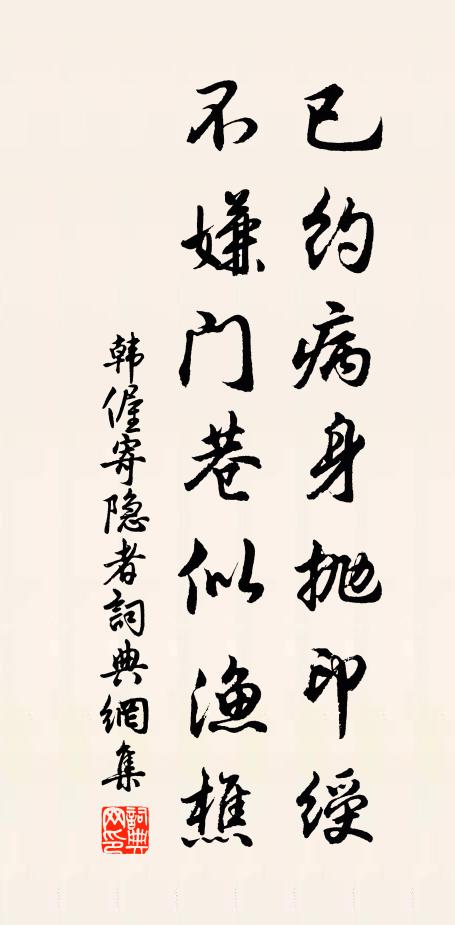 已约病身抛印绶
不嫌门巷似渔樵
韩偓寄隐者詞典網集
詞典网印